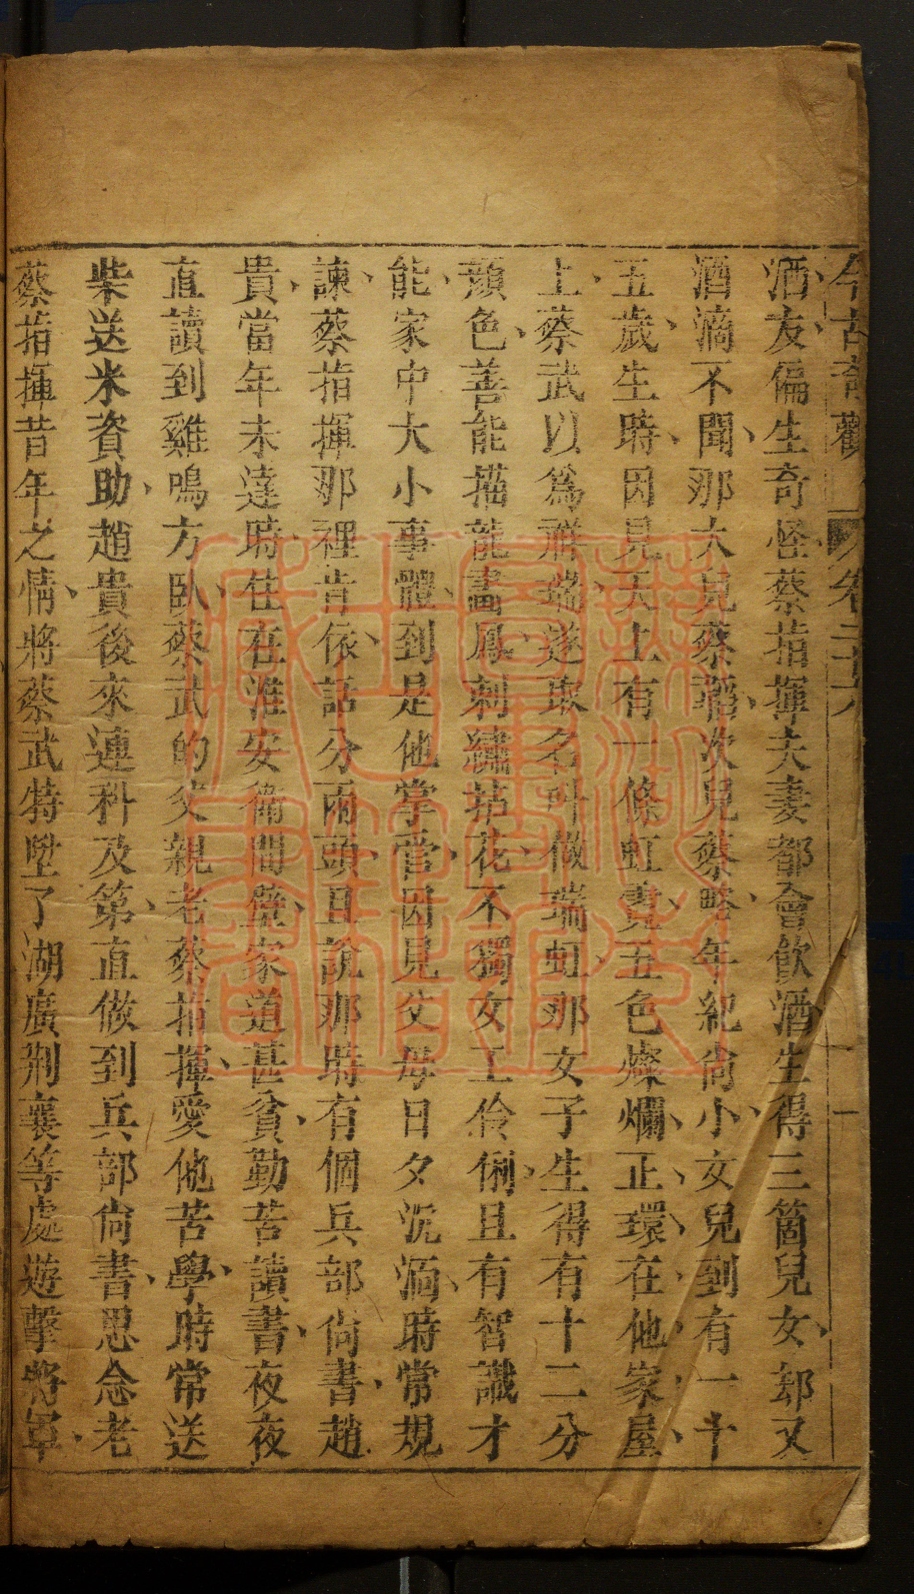 今古奇觀 卷二十六 一
酒友偏生奇怪蔡指揮夫妻都會飲酒生得三箇兒女却又
酒滴不聞那大兒蔡韜次兒蔡略年紀尙小女兒到有一十
五歲生時因見天上有一條虹霓五色燦爛正環在他家屋
上蔡武以爲祥瑞遂取名叫做瑞虹那女子生得有十二分
顏色善能描龍畫鳳刺繡拈花不獨女工伶俐且有智識才
能家中大小事體到是他掌管因見父母日夕沉湎時常規
諫蔡指揮那裡肯依話分兩頭且說那時有個兵部尙書趙
貴當年未達時住在淮安衛間壁家道甚貧勤苦讀書夜夜
直讀到雞鳴方臥蔡武的父親老蔡指揮愛他苦學時常送
柴送米資助趙貴後來連科及第直做到兵部尙書思念老
蔡指揮昔年之情將蔡武特陞了湖廣荆襄等處遊擊將軍